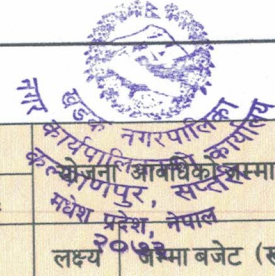 खडक नगरपालिका
नगर कार्यपालिकाको कार्यालय
कल्याणपुर, सप्तरी
मधेश प्रदेश, नेपाल
२०७३
योजना आवधिको जम्मा
लक्ष्य जम्मा बजेट (